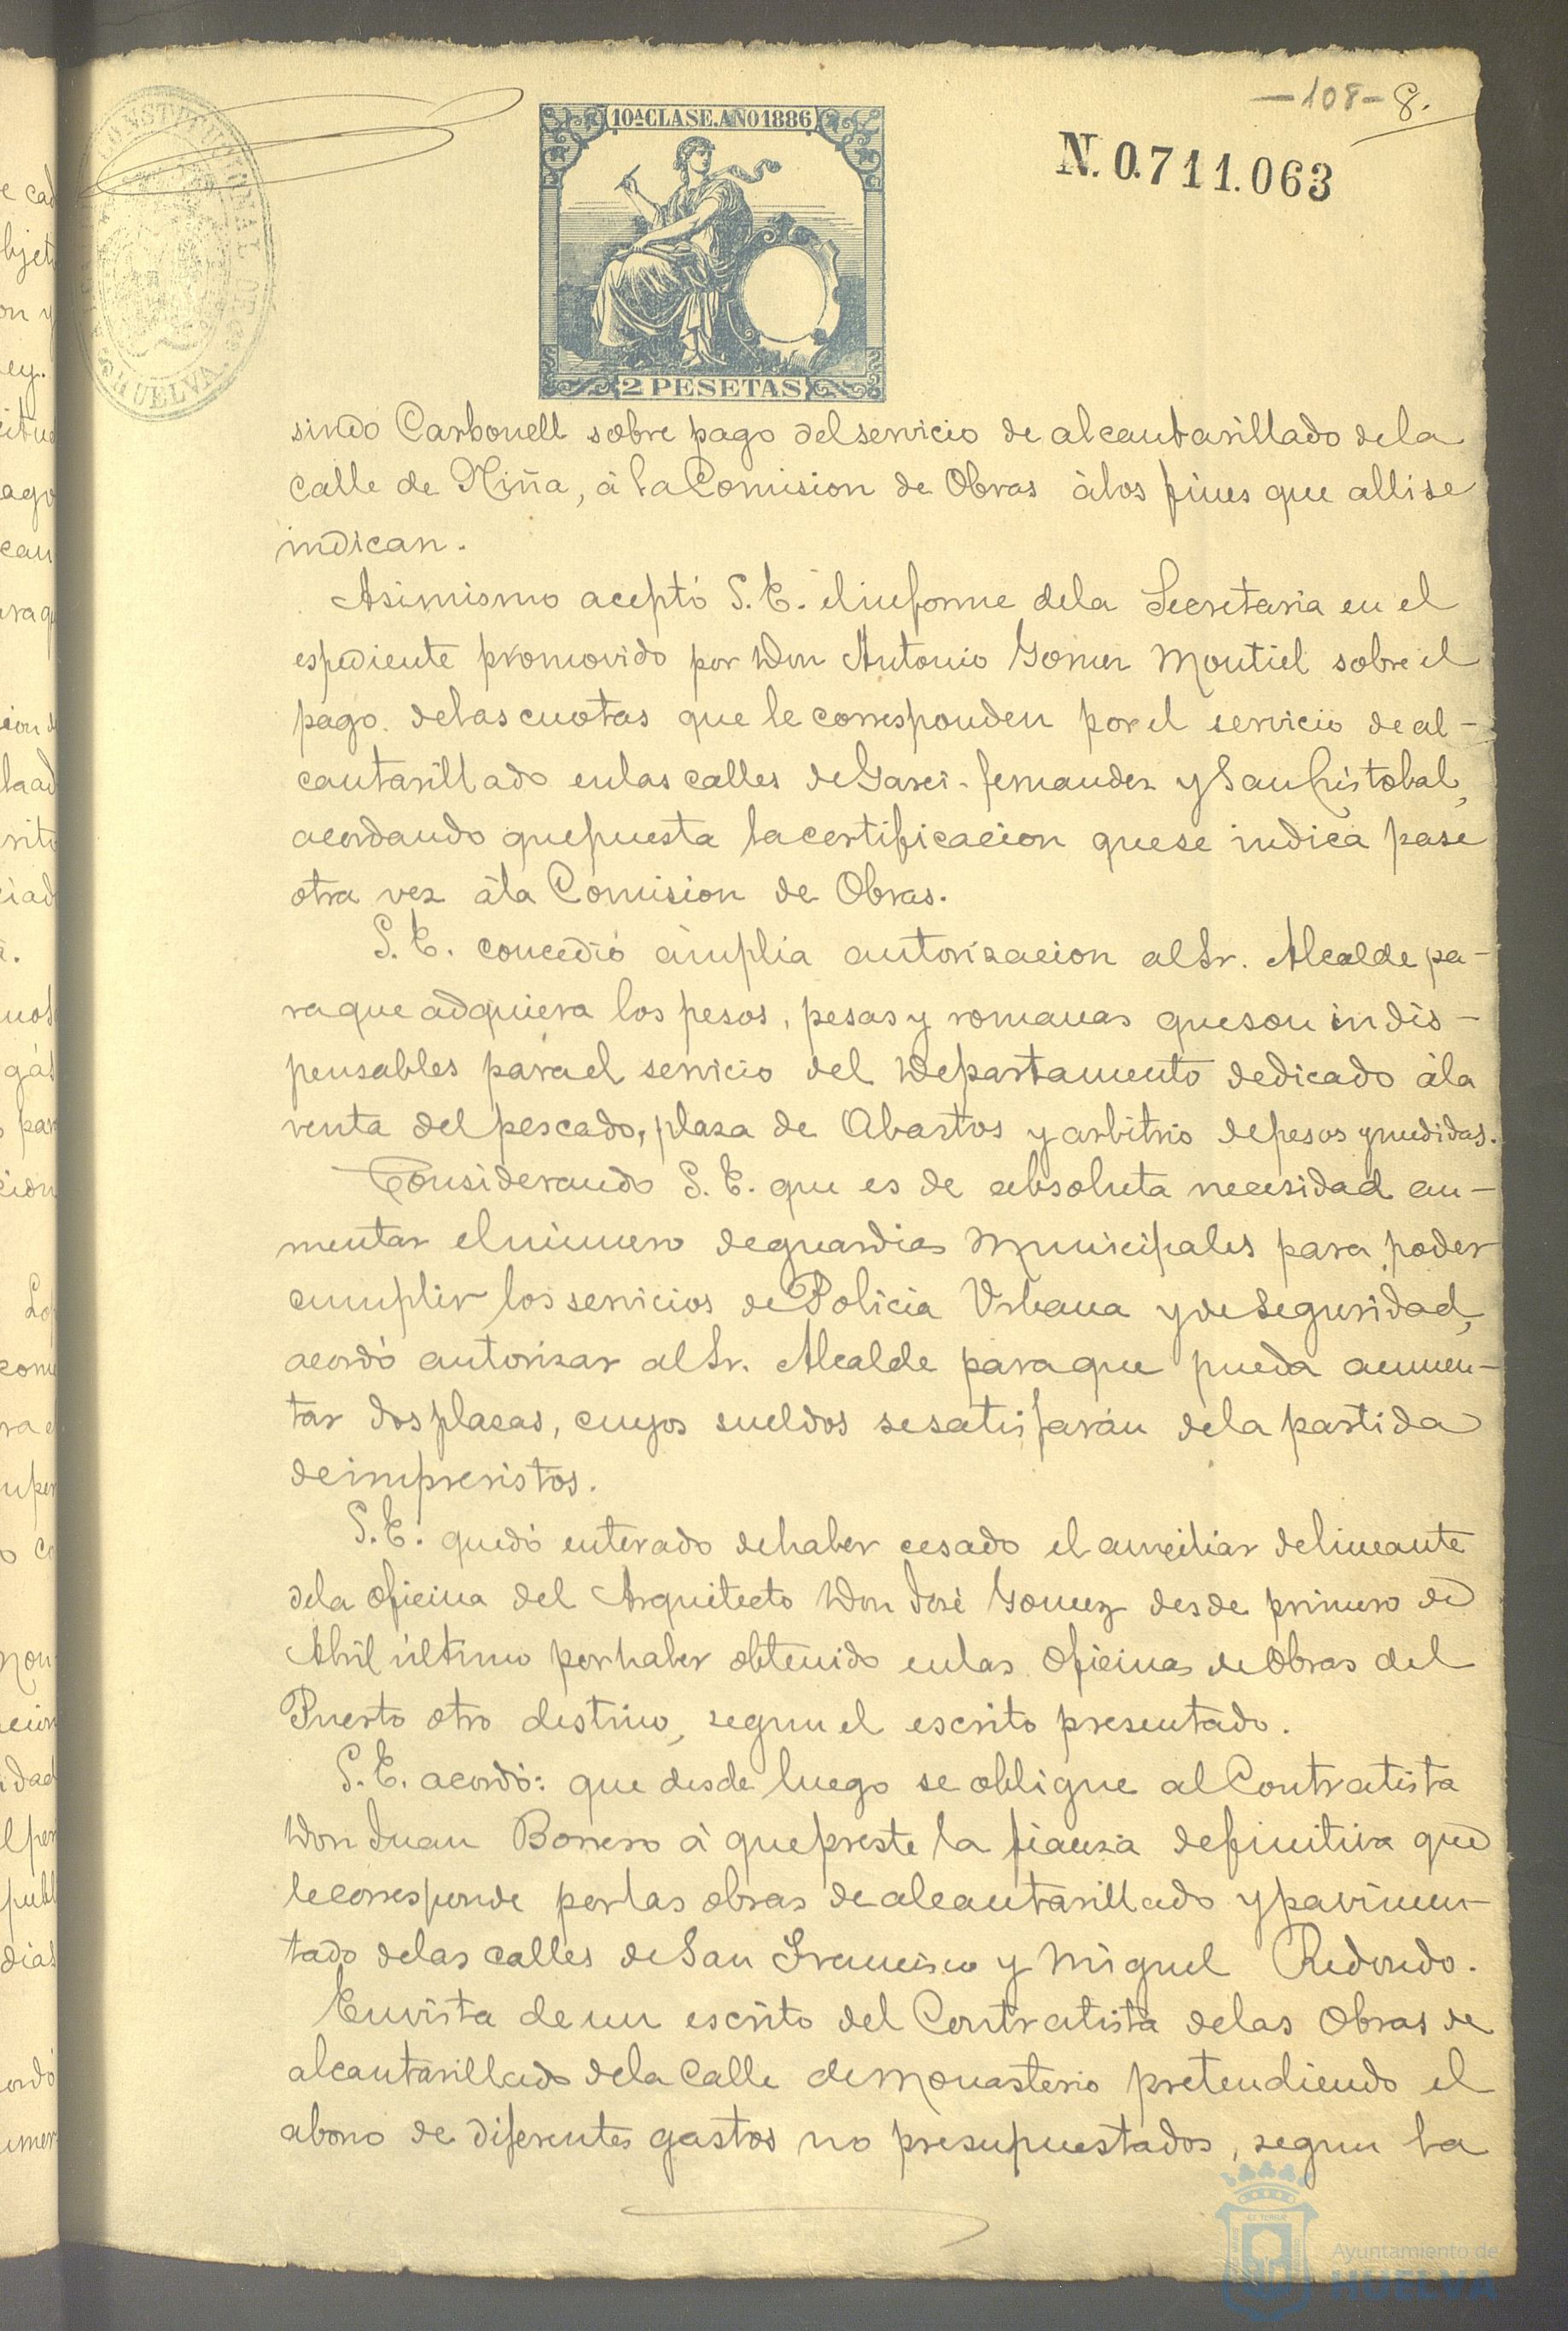 -108- 8.
10ª CLASE. AÑO 1886
N. 0.711.063
CONSTITUCIONAL DE
HUELVA
2 PESETAS
sindo Carbonell sobre pago del servicio de alcantarillado de la
calle de Niña, á la Comision de Obras á los fines que alli se
indican.
Asimismo aceptó S. E. el informe de la Secretaria en el
espediente promovido por Don Antonio Gomez Montiel sobre el
pago de las cuotas que le corresponden por el servicio de al-
cantarillado en las calles de Garci-fernandez y San Cristobal,
acordando que puesta la certificacion que se indica pase
otra vez á la Comision de Obras.
S. E. concedió ámplia autorizacion al Sr. Alcalde pa-
ra que adquiera los pesos, pesas y romanas que son indis-
pensables para el servicio del Departamento dedicado á la
venta del pescado, plaza de Abastos y arbitrio de pesos y medidas.
Considerando S. E. que es de absoluta necesidad au-
mentar el número de guardias Municipales para poder
cumplir los servicios de Policia Urbana y de Seguridad,
acordó autorizar al Sr. Alcalde para que pueda aumen-
tar dos plazas, cuyos sueldos se satisfarán de la partida
de imprevistos.
S. E. quedó enterado de haber cesado el auxiliar delineante
de la oficina del Arquitecto Don José Gomez desde primero de
Abril último por haber obtenido en las oficinas de Obras del
Puerto otro destino, segun el escrito presentado.
S. E. acordó: que desde luego se obligue al Contratista
Don Juan Borrero á que preste la fianza definitiva que
le corresponde por las obras de alcantarillado y pavimen-
tado de las calles de San Francisco y Miguel Redondo.
En vista de un escrito del Contratista de las Obras de
alcantarillado de la Calle de Monasterio pretendiendo el
abono de diferentes gastos no presupuestados, segun la
Ayuntamiento de
HUELVA